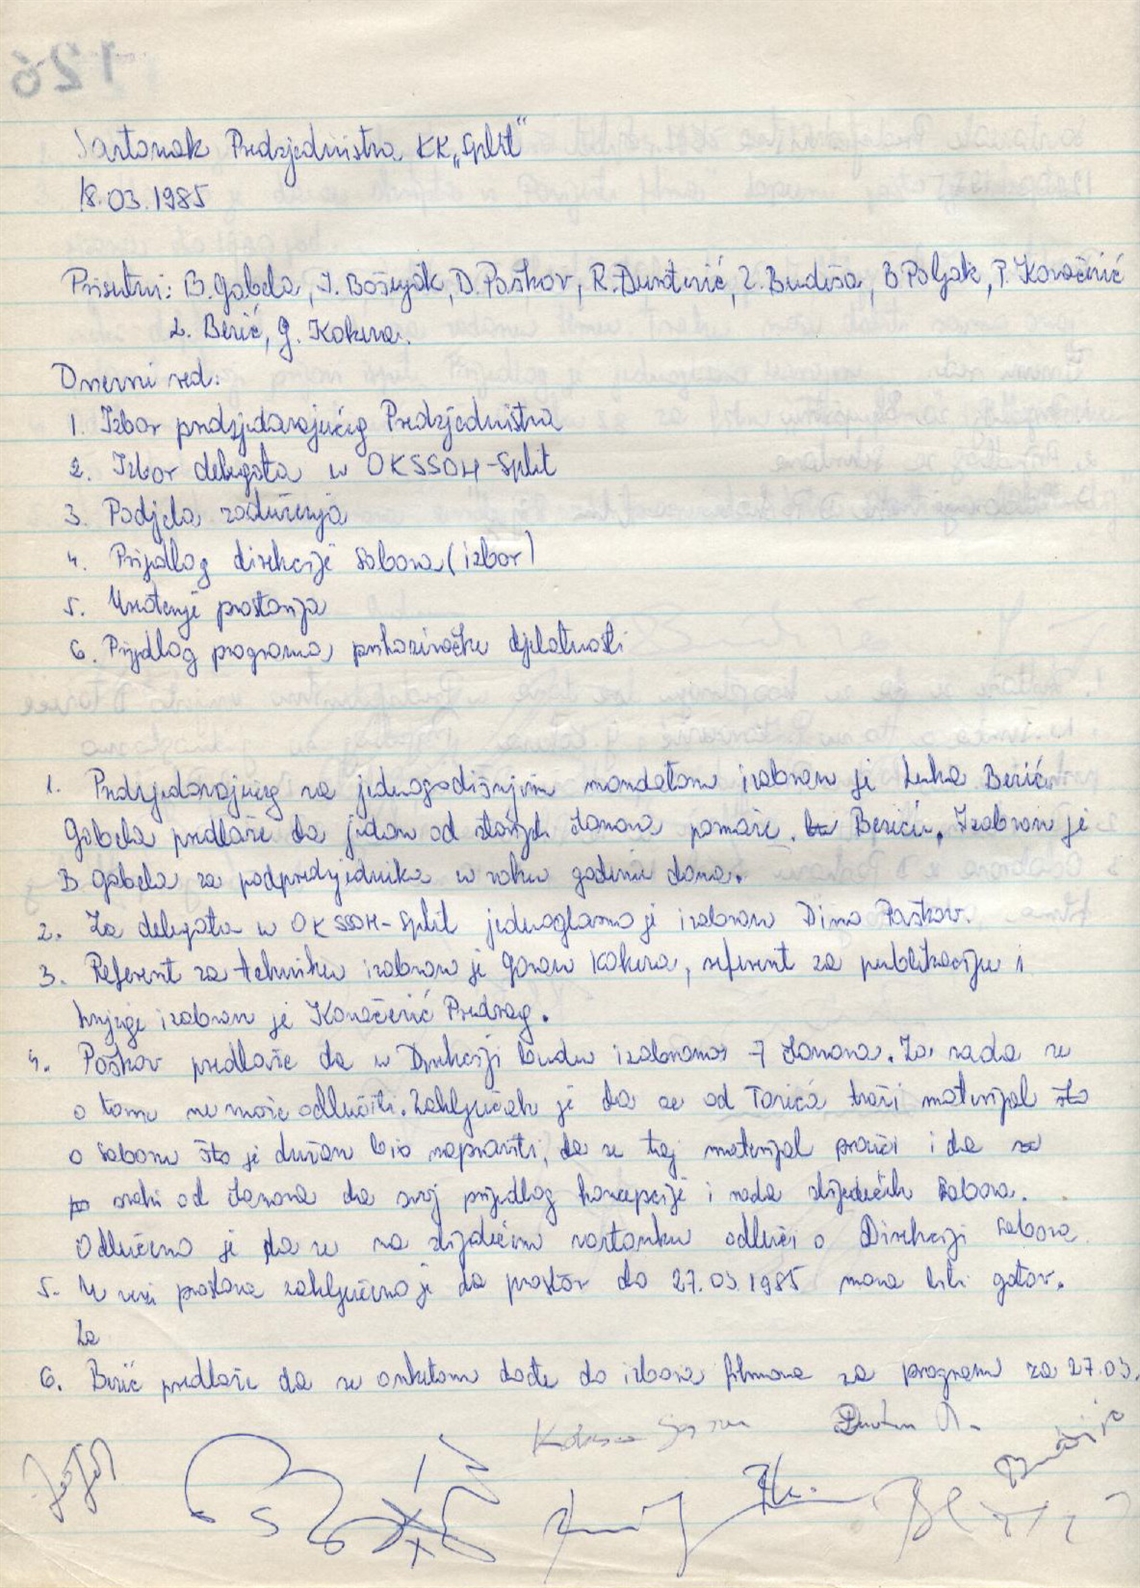 Sastanak Predsjedništva KK „Split"
18.03.1985
Prisutni: B. Gabela, I. Bošnjak, D. Paškov, R. Durdević, Z. Budiša, B Poljak, P. Kovačević
L. Berić, G. Kokera.
Dnevni red:
1. Izbor predsjedavajućeg Predsjedništva
2. Izbor delegata u OKSSOH-Split
3. Podjela zaduženja
4. Prijedlog direkcije Sabora (izbor)
5. Uređenje prostorija
6. Prijedlog programa prikazivačke djelatnosti
1. Predsjedavajućeg sa jednogodišnjim mandatom izabran je Luka Berić.
Gabela predlaže da jedan od starijih članova pomaže Beriću. Izabran je
B Gabela za podpredsjednika u roku godinu dana.
2. Za delegata u OKSSOH-Split jednoglasno je izabran Dino Paškov.
3. Referent za tehniku izabran je Goran Kokera, referent za publikacije i
knjige izabran je Kovačević Predrag.
4. Paškov predlaže da u Direkciji budu izabrana 7 članova. Za sada se
o tome ne može odlučiti. Zaključak je da se od Tarića traži materijal što
o Saboru što je dužan bio napraviti, da se taj materijal prouči i da
svaki od članova da svoj prijedlog koncepcije i rada slijedećih Sabora.
Odlučeno je da se na slijedećem sastanku odluči o Direkciji Sabora
5. U vezi prostora zaključeno je da prostor do 27.03.1985 mora biti gotov.
Za
6. Berić predlaže da se anketom dođe do izbora filmova za program za 27.03.